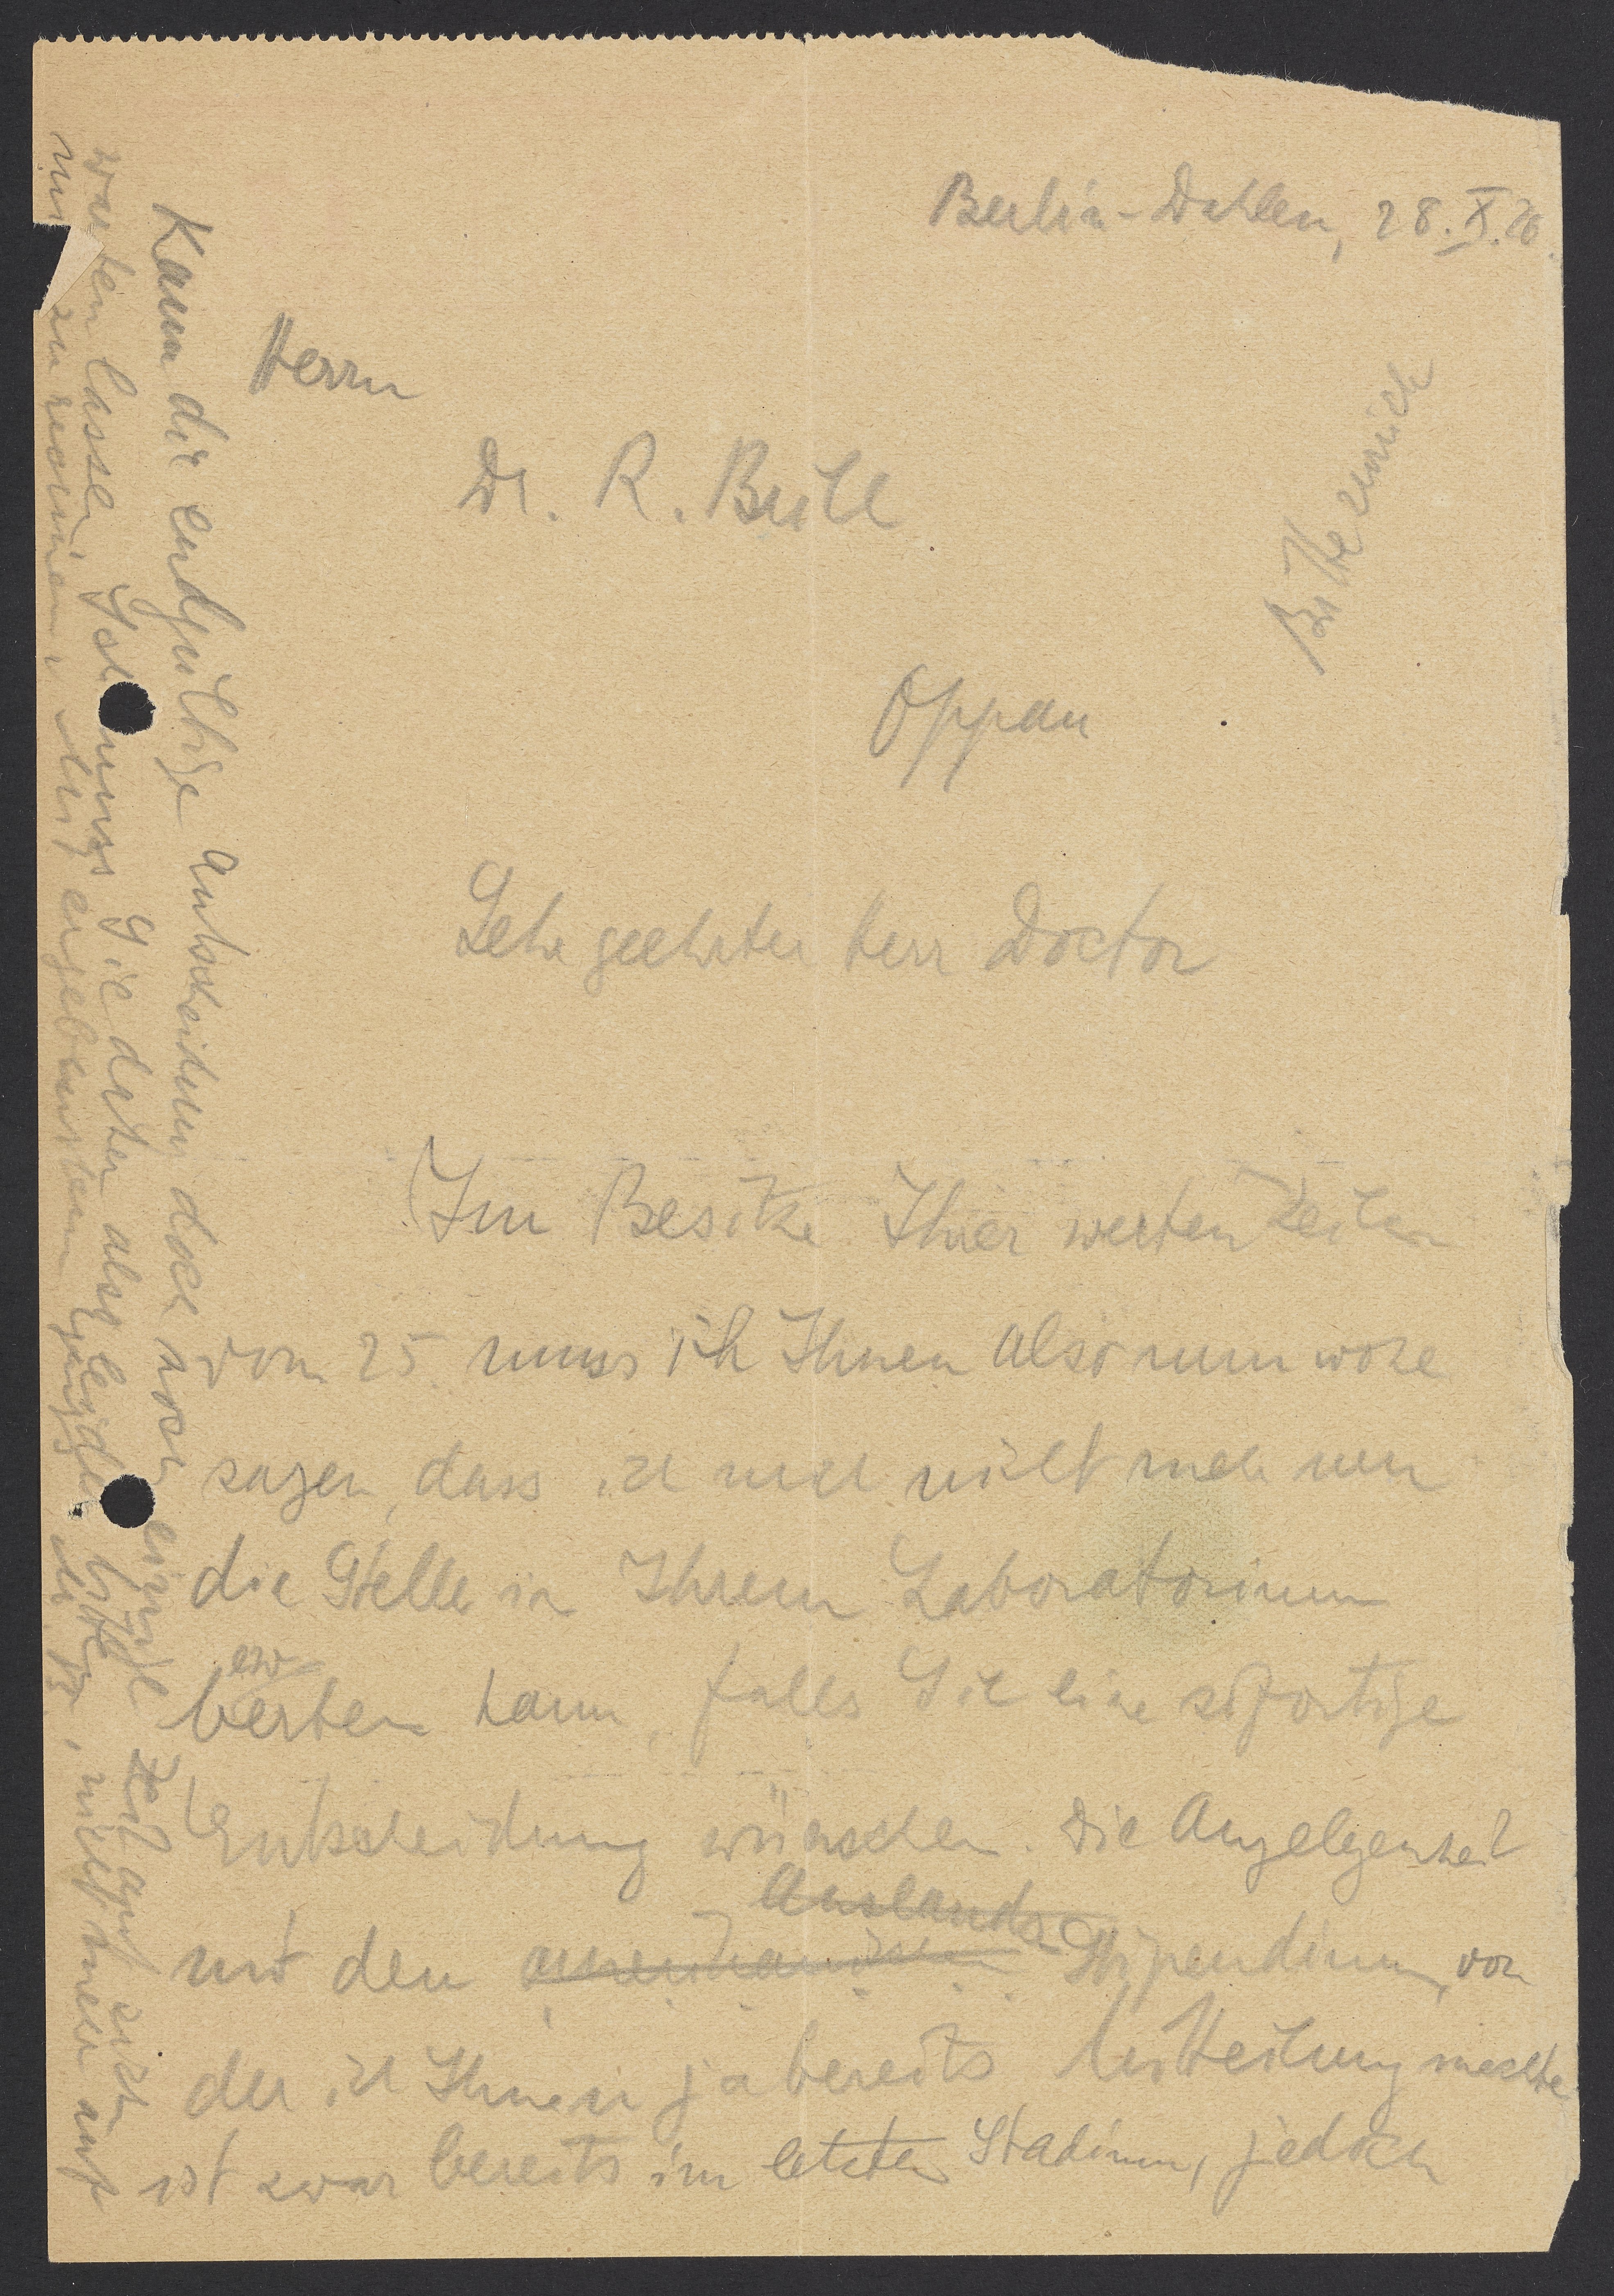 Berlin-Dahlem, 28.X.26.
Herrn
Dr. R. Brill
Oppau
Sehr geehrter Herr Doctor
Im Besitze Ihrer werten Zeilen
vom 25. muss ich Ihnen also nun wohl
sagen, dass ich mich nicht mehr um
die Stelle in Ihrem Laboratorium
bewerben kann, falls Sie eine sofortige
Entscheidung wünschen. Die Angelegenheit
mit dem Auslands-Stipendium, von
der ich Ihnen ja bereits Mitteilung machte
ist zwar bereits im letzten Stadium, jedoch
kann die endgültige Entscheidung doch noch einige Zeit auf sich
warten lassen. Ich muss Sie daher also leider bitten, nicht mehr auf
mich zu rechnen. Mit ergebenstem